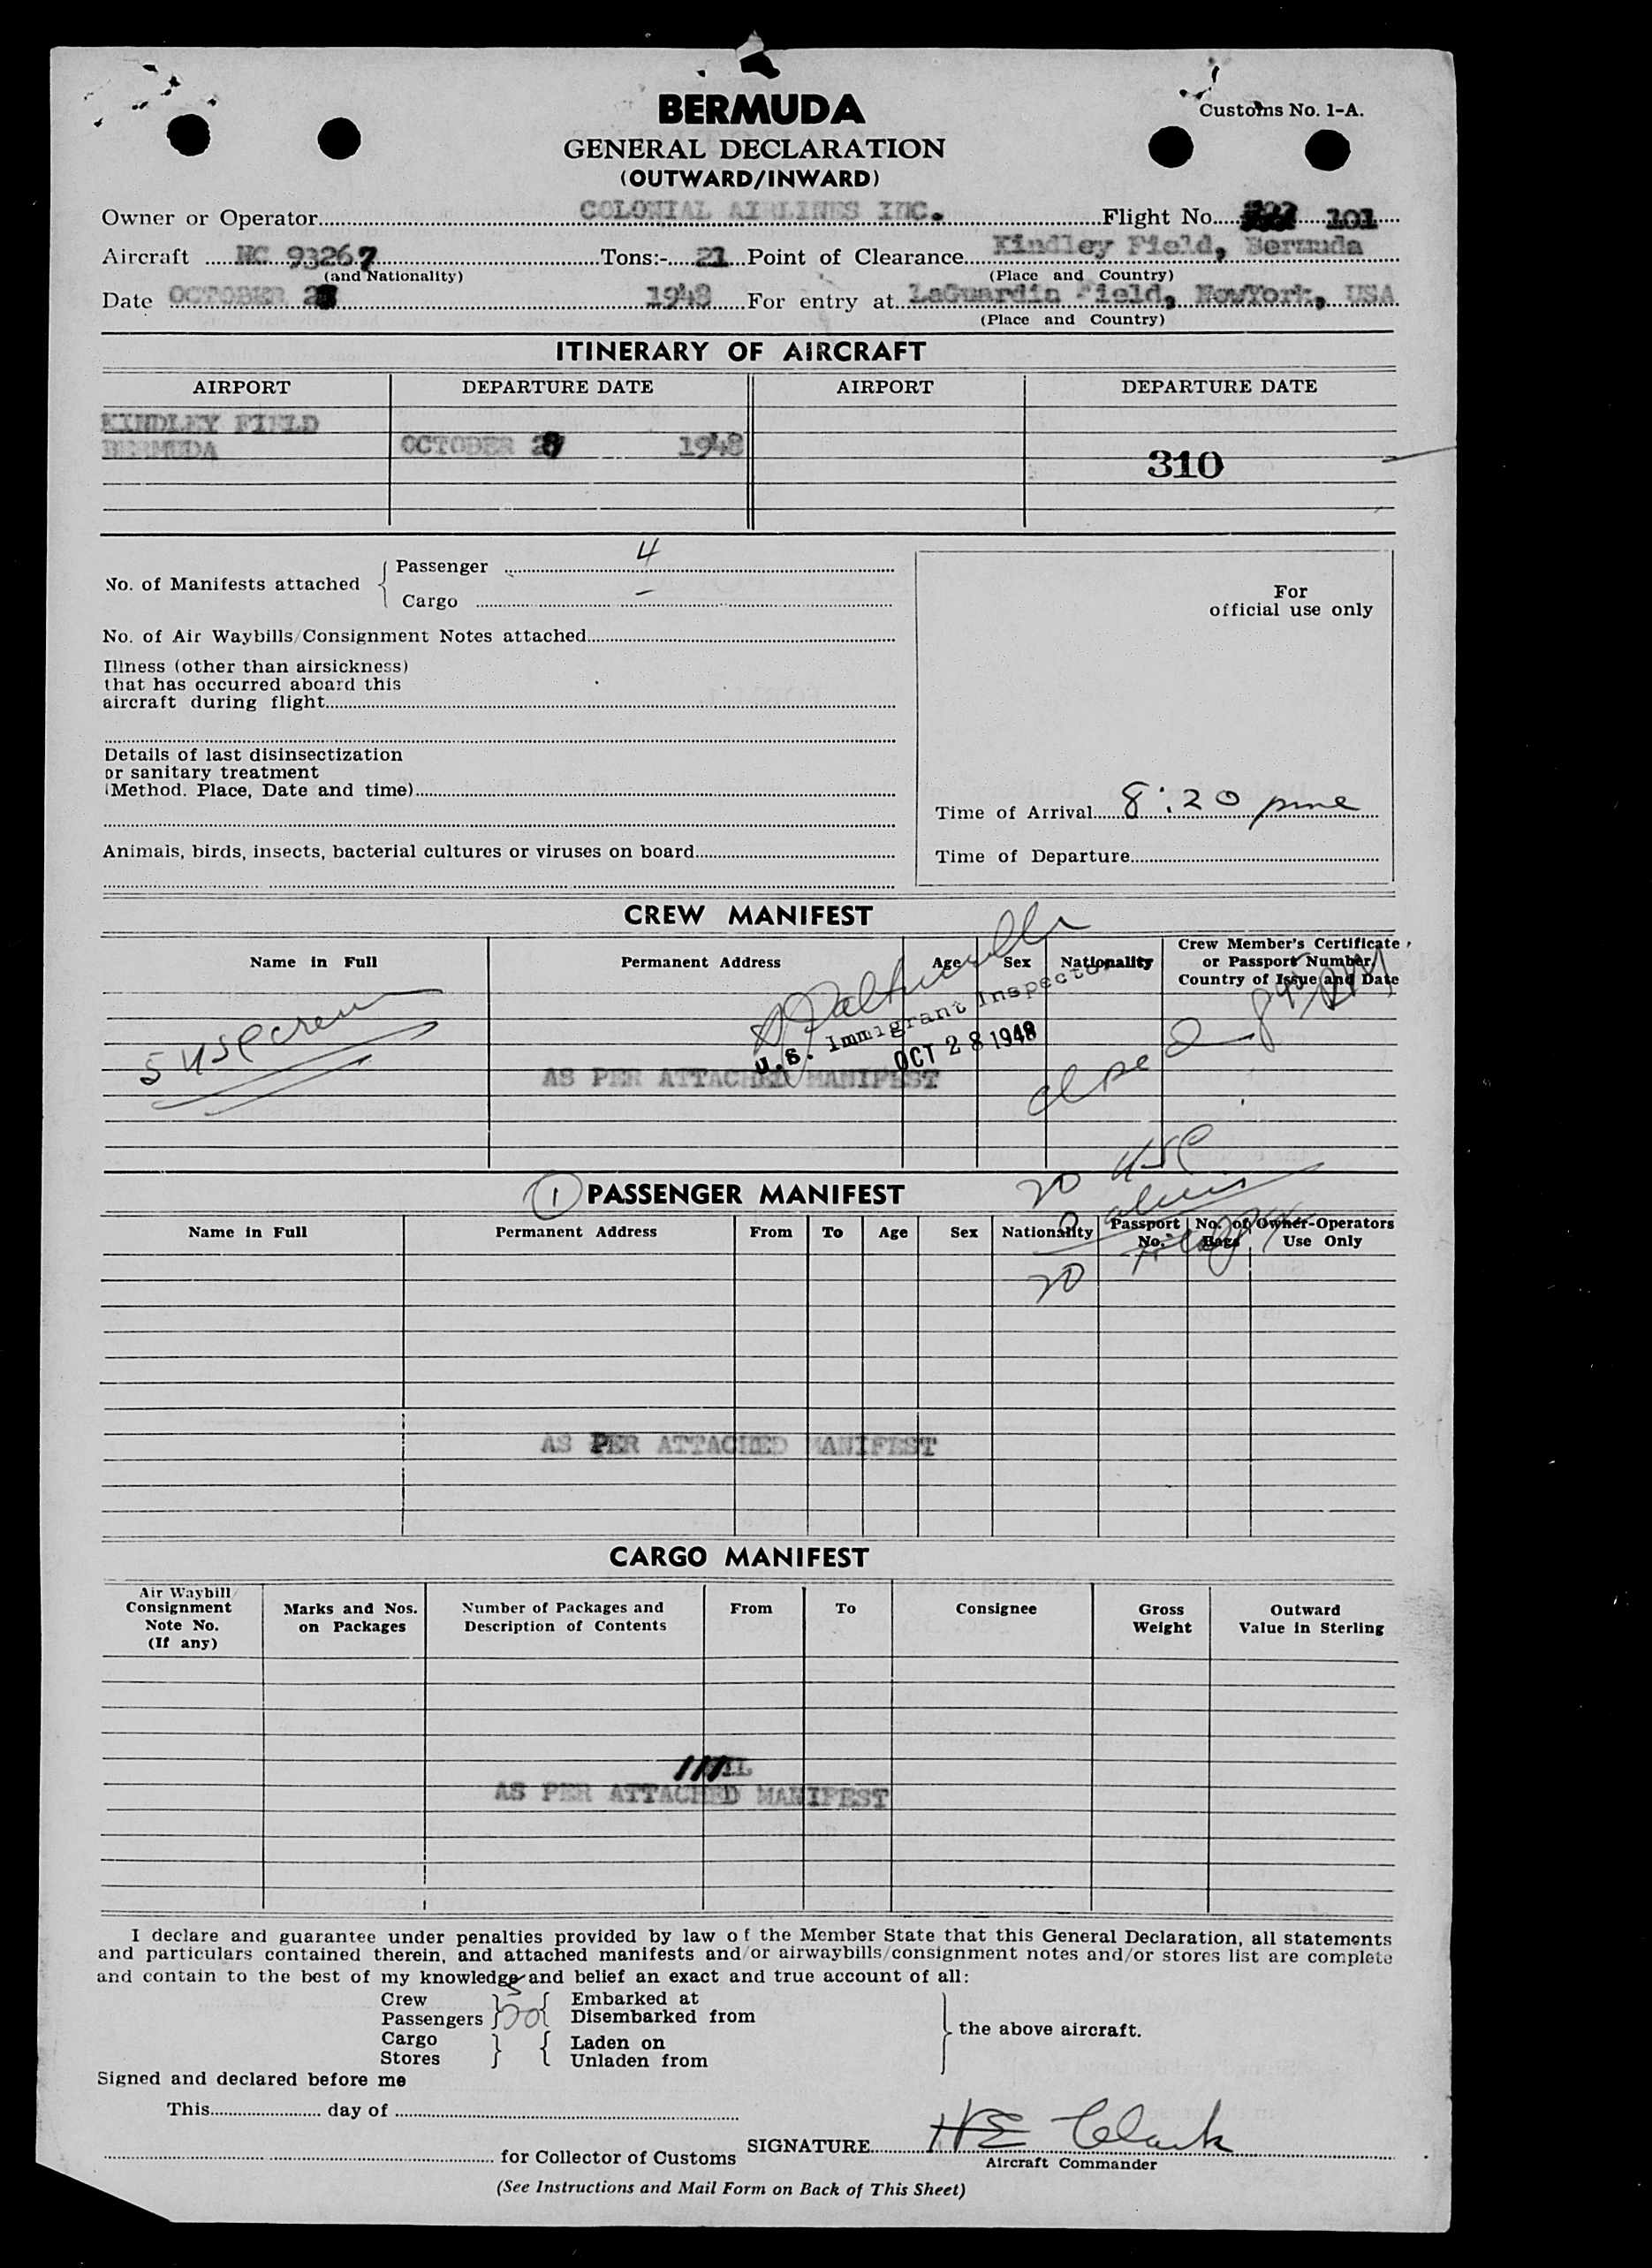 BERMUDA
Customs No. 1-A.
GENERAL DECLARATION
(OUTWARD/INWARD)
Owner or Operator COLONIAL AIRLINES INC. Flight No. 101
Aircraft NC 93267 Tons:- 21 Point of Clearance Kindley Field, Bermuda
(and Nationality) (Place and Country)
Date OCTOBER 1948 For entry at LaGuardia Field, NewYork, USA
(Place and Country)
ITINERARY OF AIRCRAFT
AIRPORT DEPARTURE DATE AIRPORT DEPARTURE DATE
KINDLEY FIELD
BERMUDA OCTOBER 28 1948
310
No. of Manifests attached Passenger 4
Cargo –
For
official use only
No. of Air Waybills/Consignment Notes attached
Illness (other than airsickness)
that has occurred aboard this
aircraft during flight
Details of last disinsectization
or sanitary treatment
(Method. Place, Date and time)
Time of Arrival 8:20 pm
Animals, birds, insects, bacterial cultures or viruses on board
Time of Departure
CREW MANIFEST
Name in Full Permanent Address Age Sex Nationality Crew Member's Certificate
or Passport Number,
Country of Issue and Date
5 USC crew
U.S. Immigrant Inspector
OCT 28 1948
AS PER ATTACHED MANIFEST
20 USC
1 PASSENGER MANIFEST
0 aliens
Name in Full Permanent Address From To Age Sex Nationality Passport No. No. of Bags Owner-Operators Use Only
20
AS PER ATTACHED MANIFEST
CARGO MANIFEST
Air Waybill/
Consignment
Note No.
(If any)
Marks and Nos.
on Packages
Number of Packages and
Description of Contents
From To Consignee
Gross
Weight
Outward
Value in Sterling
AS PER ATTACHED MANIFEST
I declare and guarantee under penalties provided by law of the Member State that this General Declaration, all statements
and particulars contained therein, and attached manifests and/or airwaybills/consignment notes and/or stores list are complete
and contain to the best of my knowledge and belief an exact and true account of all:
Crew 5 Embarked at
Passengers 20 Disembarked from
the above aircraft.
Cargo Laden on
Stores Unladen from
Signed and declared before me
This day of
for Collector of Customs SIGNATURE HE Clark
Aircraft Commander
(See Instructions and Mail Form on Back of This Sheet)